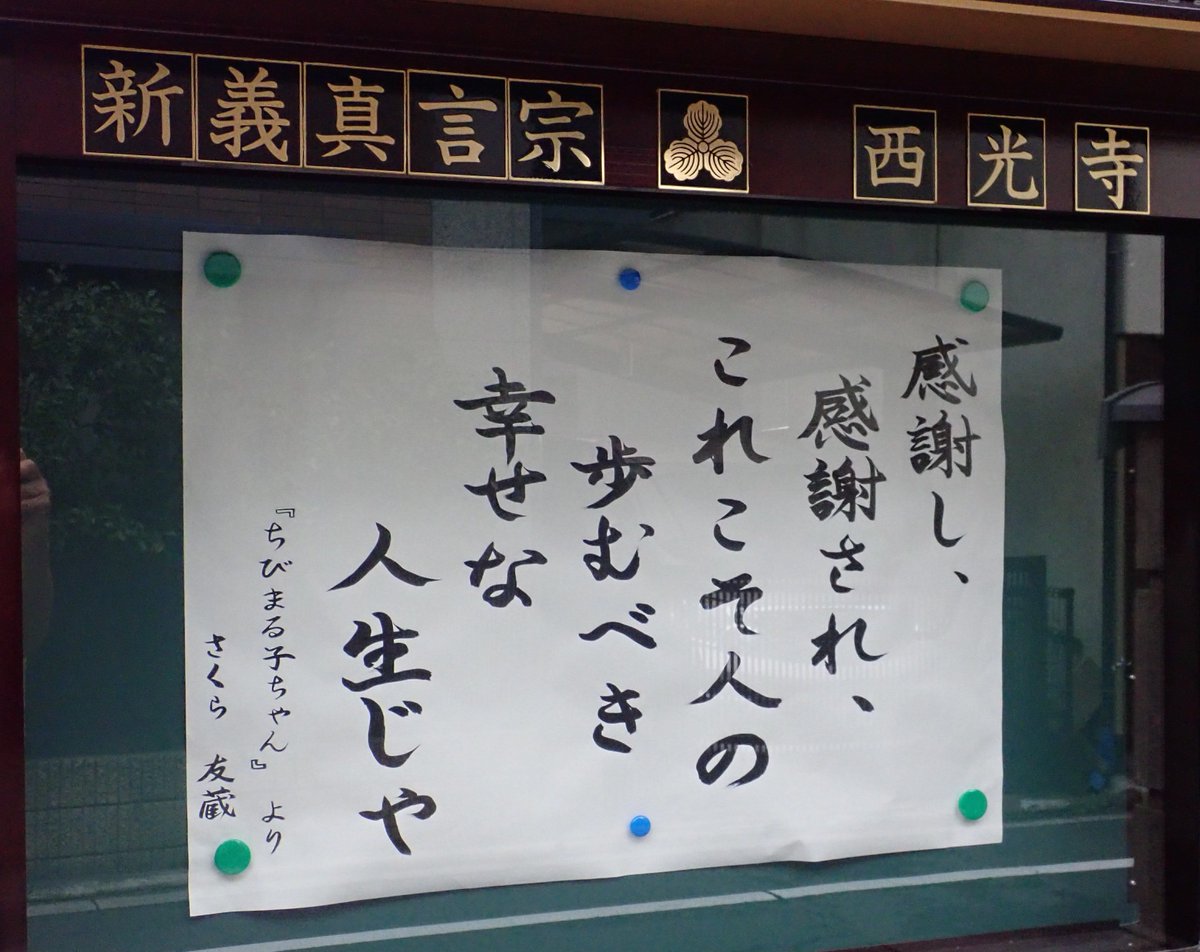 新義真言宗 西光寺
感謝し、
感謝され、
これこそ人の
歩むべき
幸せな
人生じゃ
『ちびまる子ちゃん』より
さくら 友蔵